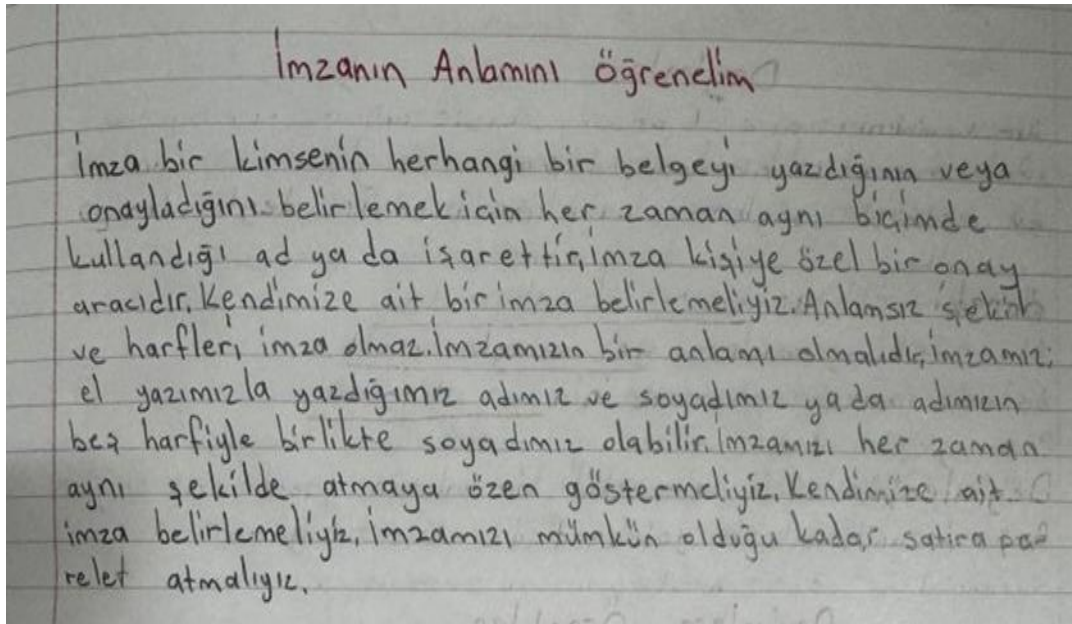 İmzanın Anlamını Öğrenelim
İmza bir kimsenin herhangi bir belgeyi yazdığının veya
onayladığını belirlemek için her zaman aynı biçimde
kullandığı ad ya da işarettir, imza kişiye özel bir onay
aracıdır. Kendimize ait bir imza belirlemeliyiz. Anlamsız şekil
ve harfleri imza olmaz. İmzamızın bir anlamı olmalıdır, imzamız;
el yazımızla yazdığımız adımız ve soyadımız ya da adımızın
beş harfiyle birlikte soyadımız olabilir. İmzamızı her zaman
aynı şekilde atmaya özen göstermeliyiz. Kendimize ait
imza belirlemeliyiz. İmzamızı mümkün olduğu kadar satıra pa-
relet atmalıyız.